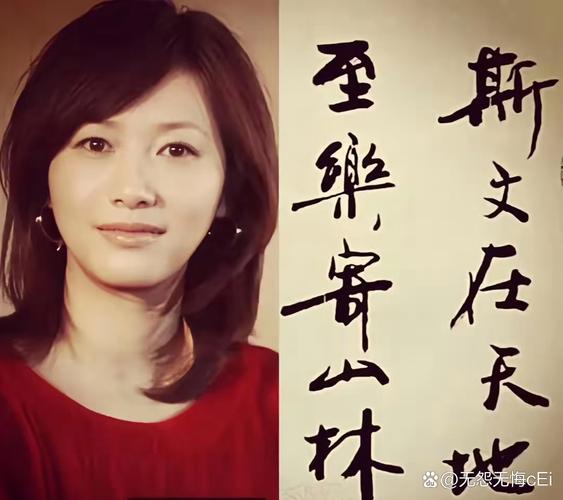 斯文在天地
至樂寄山林
@无怨无悔cEi